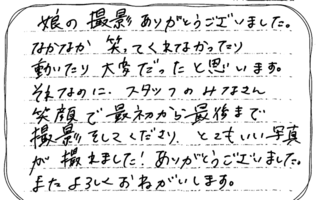 娘の撮影ありがとうございました。
なかなか笑ってくれなかったり
動いたり大変だったと思います。
それなのに、スタッフのみなさん
笑顔で最初から最後まで
撮影をしてくださり、とてもいい写真
が撮れました!ありがとうございました。
またよろしくおねがいします。